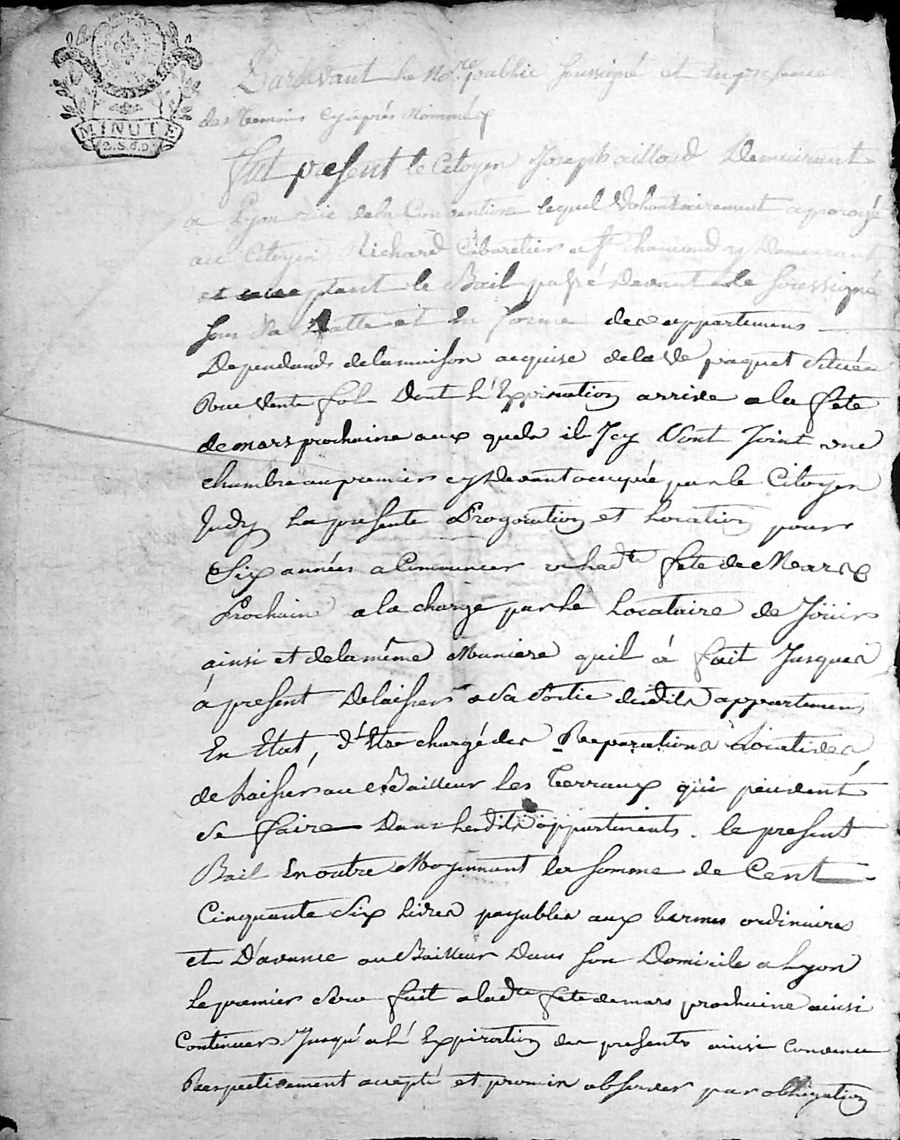 MINUTE
2. S. 6. D.
Pardevant le No.re public soussigné et en presence
des temoins cyaprés Nommés
Fut present le Citoyen Joseph aillard Demeurant
a Lyon rue de la Convention lequel Volontairement a prorogé
au Citoyen Richard Cabaretier a St. chamond y Demeurant
et acceptant le Bail passé devant le Soussigné
sous Sa datte et en forme des appartemens
Dependands delamaison acquise delave paquet Située
Rue Vente fol Dont L'Expiration arrive a la fete
demars prochaine aux quels il Icy Vont Joint une
chambre au premier cy Devant occupée par le Citoyen
Judy La presente Prorogation et Location pour
Six années a Commencer a ladte fete de Mars
Prochain a la charge par le Locataire de Joüir
ainsi et delamême Maniere quil à fait Jusques
á present Delaisser a Sa Sortie desdits appartemens
En Etat, d'Etre chargé des Reparations Locatives
de Laisser au Bailleur les Terraux qui peuvent
Se faire Dans lesdits appartiments. le present
Bail En outre Moyennant la Somme de Cent
Cinquante Six Livres payables aux termes ordinaires
et D'avance au Bailleur Dans Son Domicile a Lyon
le premier Sera fait a ladte fete de mars prochaine ainsi
Continuer Jusqu'a L'Expiration des presents ainsi Convenu
Respectivement accepté et promis observer par obligation